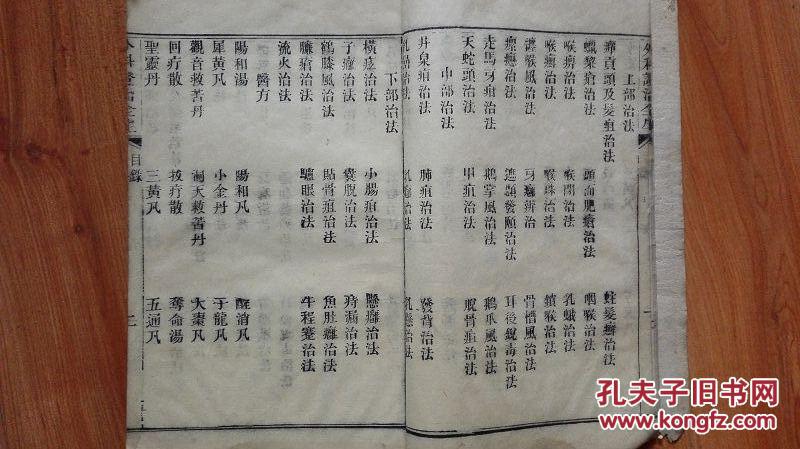 上部治法
癤貢頭及髮疽治法
蛀髮癬治法
蠟棃瘡治法
頭面肥瘡治法
咽喉治法
喉痹治法
喉閉治法
乳蛾治法
喉癰治法
喉珠治法
鎖喉治法
纏喉風治法
牙癰辨治
骨槽風治法
瘰癧治法
遮頤發頤治法
耳後銳毒治法
走馬牙疳治法
鵝掌風治法
鵝爪風治法
天蛇頭治法
甲疽治法
脫骨疽治法
中部治法
井泉疽治法
肺疽治法
發背治法
乳癌治法
乳癰治法
乳懸治法
下部治法
橫痃治法
小腸疽治法
懸癰治法
子癰治法
囊脫治法
痔漏治法
鶴膝風治法
貼骨疽治法
魚肚癰治法
臁瘡治法
驢眼治法
牛程蹇治法
流火治法
醫方
陽和湯
陽和凡
醒消凡
犀黃凡
小金丹
子龍凡
觀音救苦丹
洞天救苦丹
大棗凡
回疔散
拔疔散
奪命湯
聖靈丹
三黃凡
五通凡
外科證治全生
目錄
二
孔夫子旧书网
www.kongfz.com